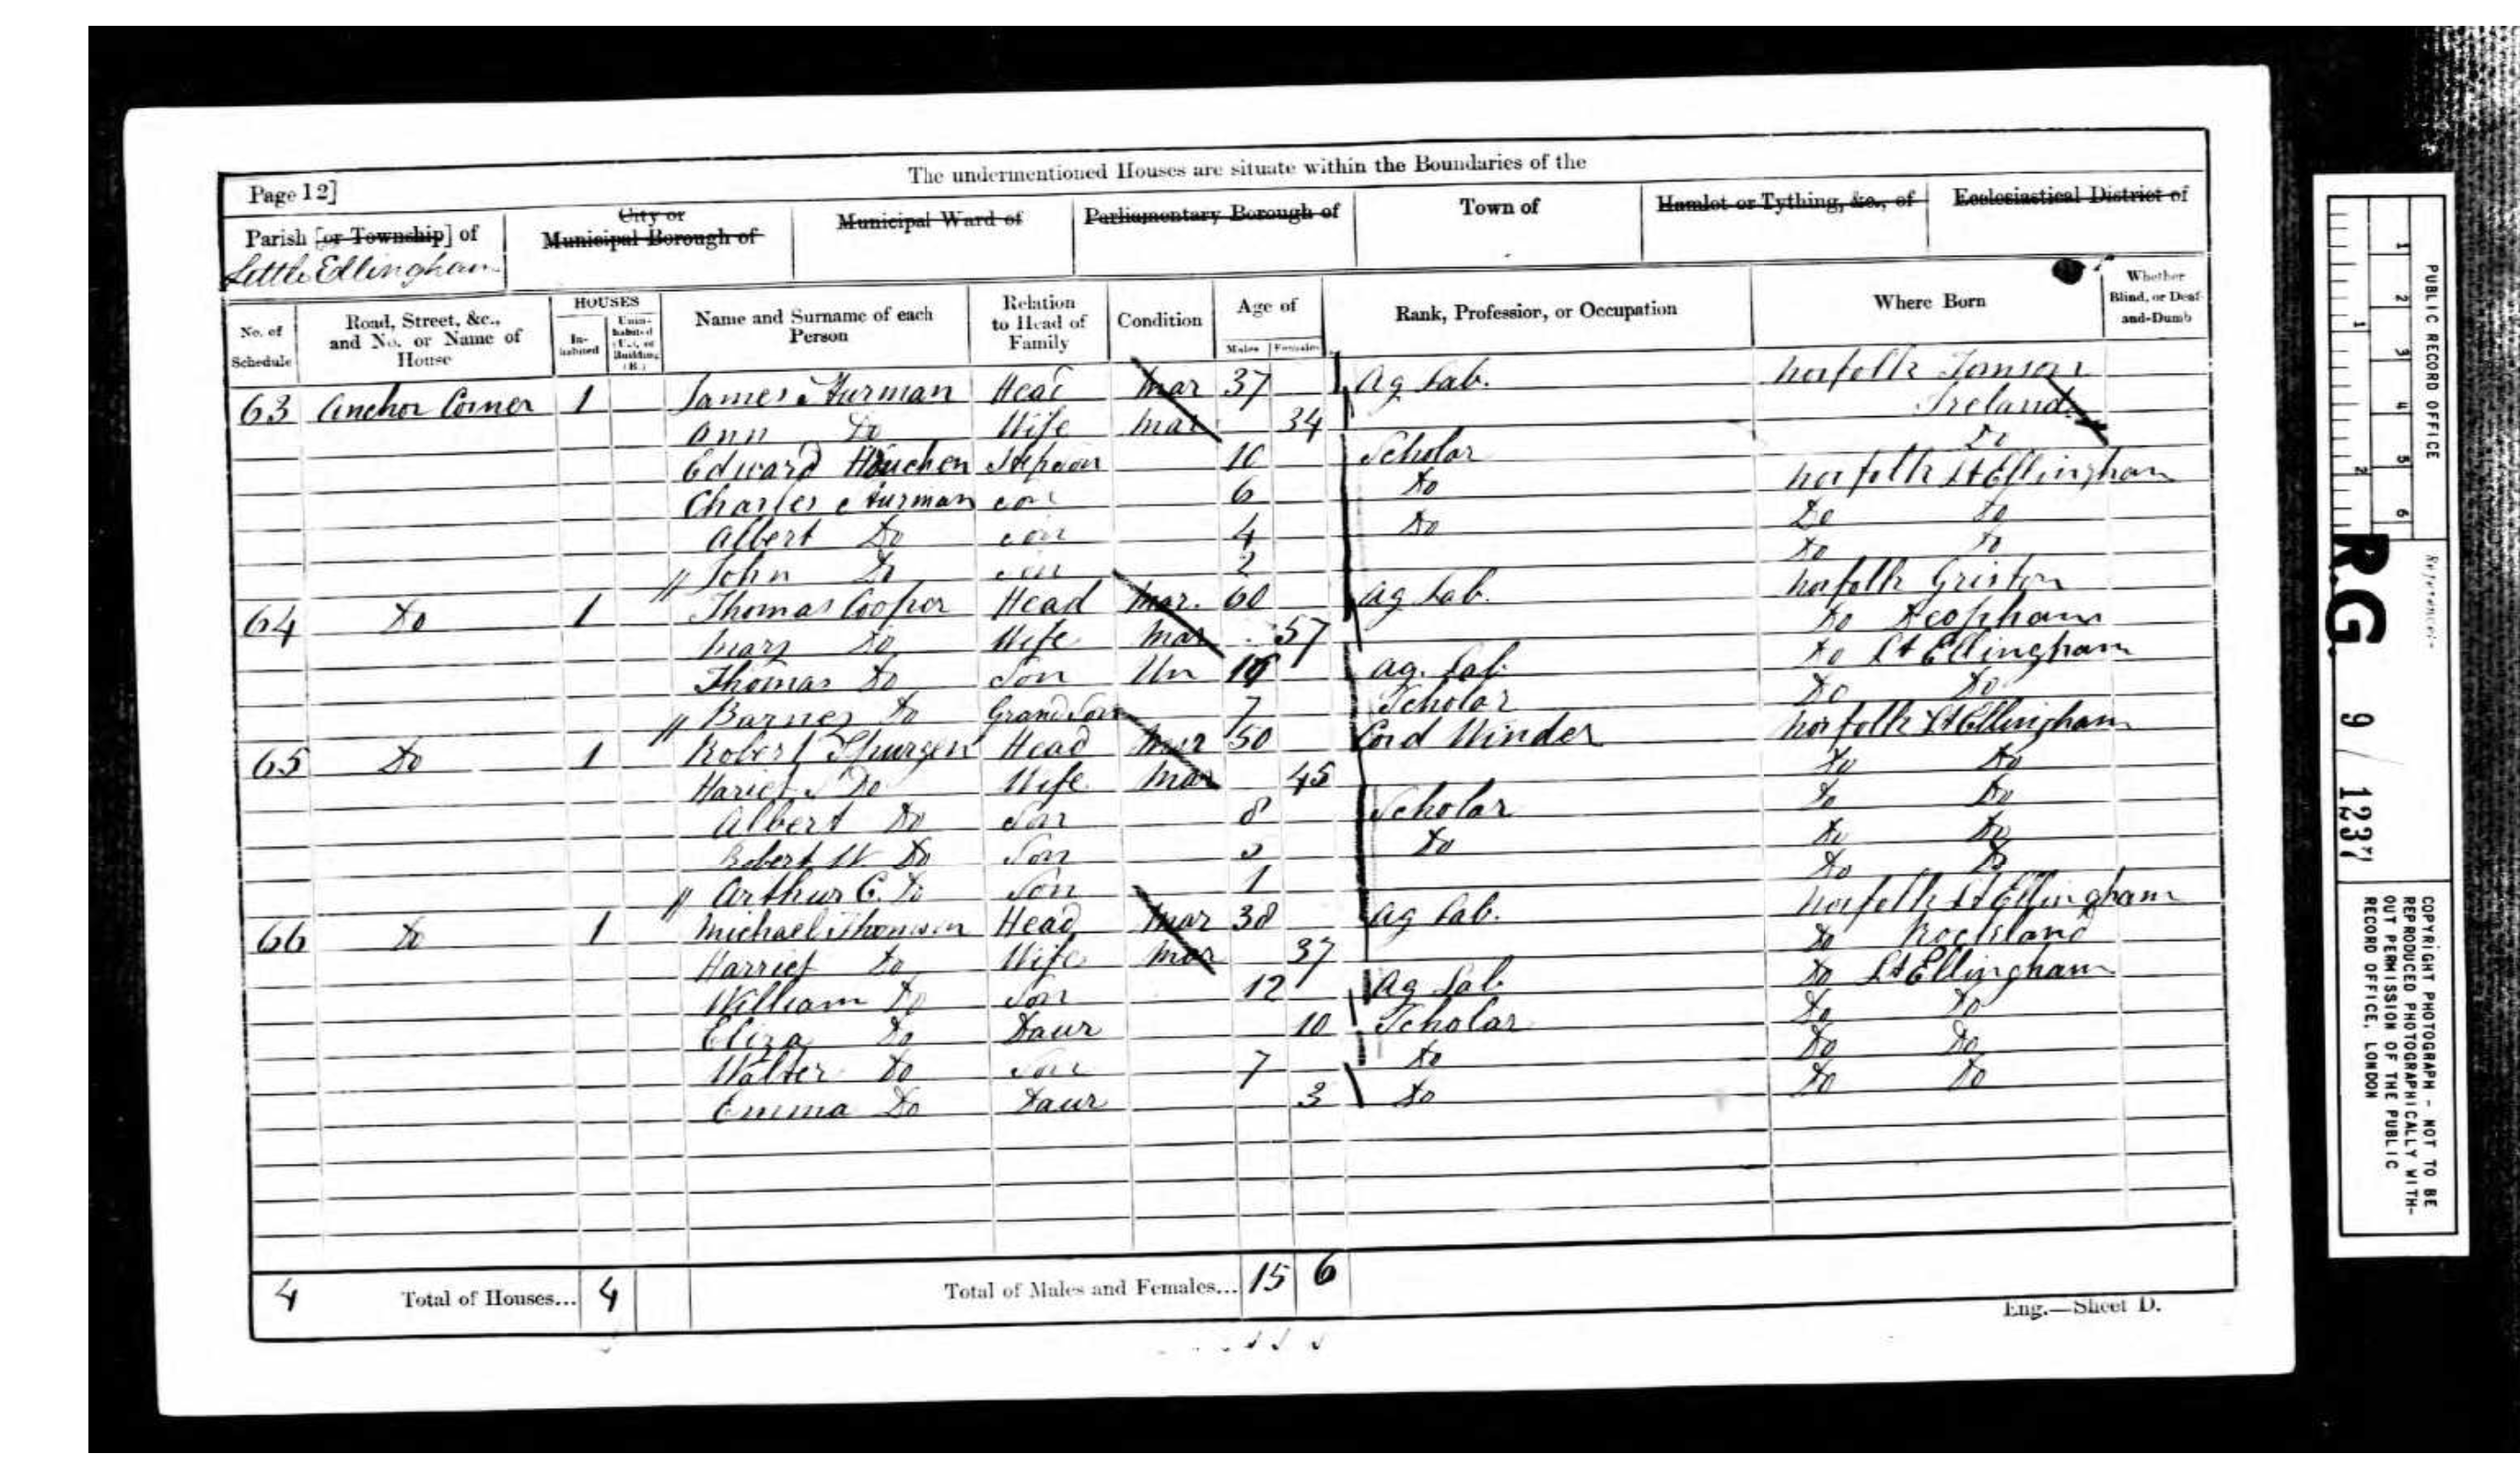 The undermentioned Houses are situate within the Boundaries of the
Page 12]
Parish [or Township] of
Little Ellingham
City or
Municipal Borough of
Municipal Ward of
Parliamentary Borough of
Town of
Hamlet or Tything, &c., of
Ecclesiastical District of
No. of Schedule
Road, Street, &c., and No. or Name of House
HOUSES
In-habited
Unin-habited (U.), or Building (B.)
Name and Surname of each Person
Relation to Head of Family
Condition
Age of
Males Females
Rank, Profession, or Occupation
Where Born
Whether Blind, or Deaf-and-Dumb
63 Anchor Corner 1 James Head Mar 37 Ag Lab. Norfolk Tomson
Ann Do Wife Mar 34 Ireland
Edward Houchen Stepson 10 Scholar Do
Charles son 6 Do Norfolk Lt Ellingham
Albert Do son 4 Do Do Do
// John Do son 2 Do Do
64 Do 1 Thomas Cooper Head Mar. 60 Ag Lab. Norfolk Griston
Mary Do Wife Mar 57 Do Scopham
Thomas Do Son Un Ag. Lab Do Lt Ellingham
// Barnes Do Grand Son 7 Scholar Do Do
65 Do 1 Robert Spurgen Head Mar 50 Cord Winder Norfolk Lt Ellingham
Hariet S Do Wife Mar 45 Do Do
Albert Do Son 8 Scholar Do Do
Robert W Do Son Do Do Do
// Arthur C. Do Son 1 Do Do
66 Do 1 Michael Thomson Head Mar 38 Ag Lab. Norfolk Lt Ellingham
Harriet Do Wife Mar 37 Do Rockland
William Do Son 12 Ag Lab Do Lt Ellingham
Eliza Do Daur 10 Scholar Do Do
Walter Do Son 7 Do Do Do
Emma Do Daur 3 Do Do Do
4 Total of Houses... 4 Total of Males and Females... 15 6
Eng.—Sheet D.
PUBLIC RECORD OFFICE
1 2 3 4 5 6
1 2
Reference:-
R.G. 9 / 1237
COPYRIGHT PHOTOGRAPH - NOT TO BE
REPRODUCED PHOTOGRAPHICALLY WITH-
OUT PERMISSION OF THE PUBLIC
RECORD OFFICE, LONDON